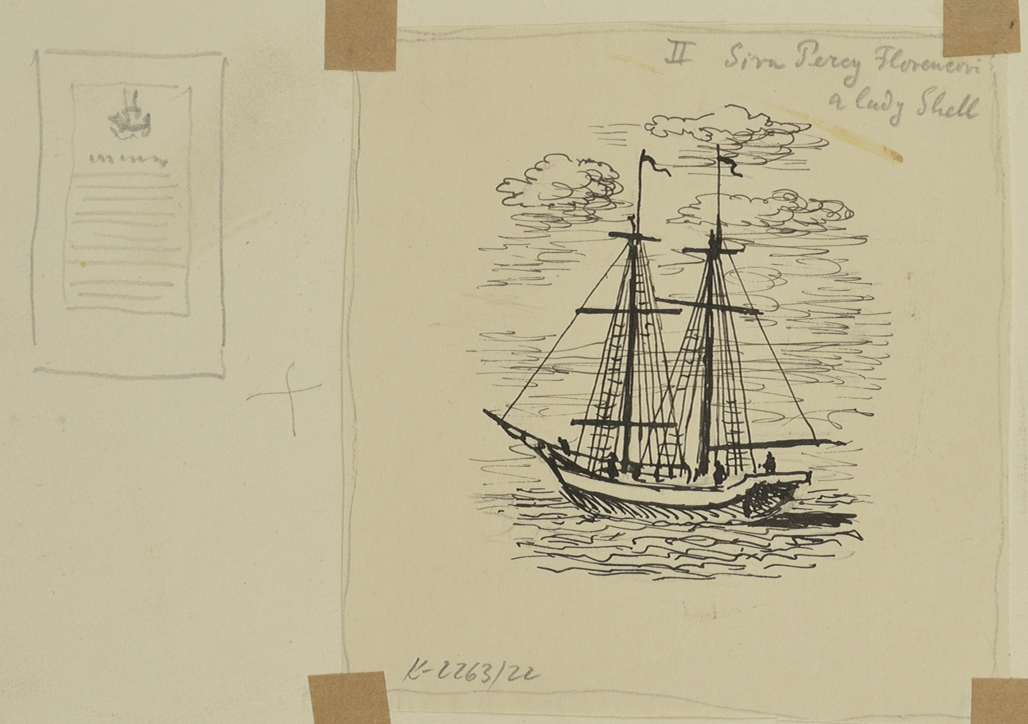 II Siru Percy Florencovi
a lady Shell
K-2263/22